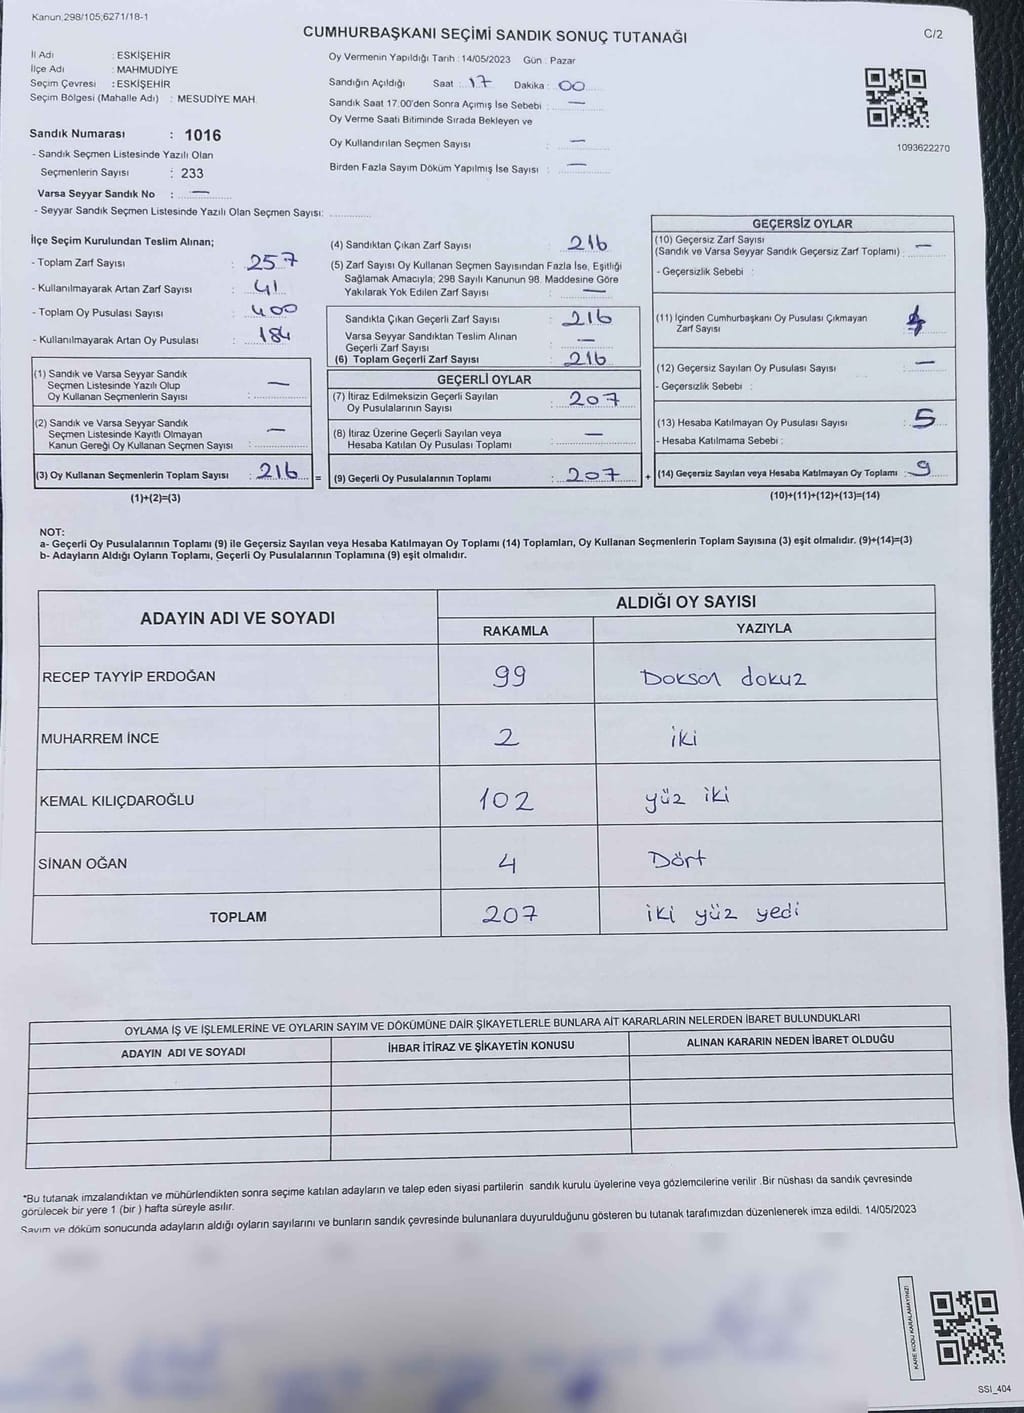 Kanun,298/105,6271/18-1
CUMHURBAŞKANI SEÇİMİ SANDIK SONUÇ TUTANAĞI
C/2
İl Adı : ESKİŞEHİR
İlçe Adı : MAHMUDİYE
Seçim Çevresi : ESKİŞEHİR
Seçim Bölgesi (Mahalle Adı) : MESUDİYE MAH.
Oy Vermenin Yapıldığı Tarih : 14/05/2023 Gün : Pazar
Sandığın Açıldığı Saat : 17 Dakika : 00
Sandık Saat 17.00'den Sonra Açımış İse Sebebi : —
Oy Verme Saati Bitiminde Sırada Bekleyen ve
Oy Kullandırılan Seçmen Sayısı : —
Birden Fazla Sayım Döküm Yapılmış İse Sayısı : —
1093622270
Sandık Numarası : 1016
- Sandık Seçmen Listesinde Yazılı Olan
Seçmenlerin Sayısı : 233
Varsa Seyyar Sandık No : —
- Seyyar Sandık Seçmen Listesinde Yazılı Olan Seçmen Sayısı:
İlçe Seçim Kurulundan Teslim Alınan;
- Toplam Zarf Sayısı : 257
- Kullanılmayarak Artan Zarf Sayısı : 41
- Toplam Oy Pusulası Sayısı : 400
- Kullanılmayarak Artan Oy Pusulası : 184
(1) Sandık ve Varsa Seyyar Sandık
Seçmen Listesinde Yazılı Olup
Oy Kullanan Seçmenlerin Sayısı : —
(2) Sandık ve Varsa Seyyar Sandık
Seçmen Listesinde Kayıtlı Olmayan
Kanun Gereği Oy Kullanan Seçmen Sayısı : —
(3) Oy Kullanan Seçmenlerin Toplam Sayısı : 216 =
(1)+(2)=(3)
(4) Sandıktan Çıkan Zarf Sayısı : 216
(5) Zarf Sayısı Oy Kullanan Seçmen Sayısından Fazla İse, Eşitliği
Sağlamak Amacıyla; 298 Sayılı Kanunun 98. Maddesine Göre
Yakılarak Yok Edilen Zarf Sayısı : —
Sandıkta Çıkan Geçerli Zarf Sayısı : 216
Varsa Seyyar Sandıktan Teslim Alınan
Geçerli Zarf Sayısı : —
(6) Toplam Geçerli Zarf Sayısı : 216
GEÇERLİ OYLAR
(7) İtiraz Edilmeksizin Geçerli Sayılan
Oy Pusulalarının Sayısı : 207
(8) İtiraz Üzerine Geçerli Sayılan veya
Hesaba Katılan Oy Pusulası Toplamı : —
(9) Geçerli Oy Pusulalarının Toplamı : 207 +
GEÇERSİZ OYLAR
(10) Geçersiz Zarf Sayısı
(Sandık ve Varsa Seyyar Sandık Geçersiz Zarf Toplamı) : —
- Geçersizlik Sebebi :
(11) İçinden Cumhurbaşkanı Oy Pusulası Çıkmayan
Zarf Sayısı : 4
(12) Geçersiz Sayılan Oy Pusulası Sayısı : —
- Geçersizlik Sebebi :
(13) Hesaba Katılmayan Oy Pusulası Sayısı : 5
- Hesaba Katılmama Sebebi :
(14) Geçersiz Sayılan veya Hesaba Katılmayan Oy Toplamı : 9
(10)+(11)+(12)+(13)=(14)
NOT:
a- Geçerli Oy Pusulalarının Toplamı (9) ile Geçersiz Sayılan veya Hesaba Katılmayan Oy Toplamı (14) Toplamları, Oy Kullanan Seçmenlerin Toplam Sayısına (3) eşit olmalıdır. (9)+(14)=(3)
b- Adayların Aldığı Oyların Toplamı, Geçerli Oy Pusulalarının Toplamına (9) eşit olmalıdır.
ADAYIN ADI VE SOYADI ALDIĞI OY SAYISI
RAKAMLA YAZIYLA
RECEP TAYYİP ERDOĞAN 99 Doksan dokuz
MUHARREM İNCE 2 iki
KEMAL KILIÇDAROĞLU 102 yüz iki
SİNAN OĞAN 4 Dört
TOPLAM 207 iki yüz yedi
OYLAMA İŞ VE İŞLEMLERİNE VE OYLARIN SAYIM VE DÖKÜMÜNE DAİR ŞİKAYETLERLE BUNLARA AİT KARARLARIN NELERDEN İBARET BULUNDUKLARI
ADAYIN ADI VE SOYADI İHBAR İTİRAZ VE ŞİKAYETİN KONUSU ALINAN KARARIN NEDEN İBARET OLDUĞU
*Bu tutanak imzalandıktan ve mühürlendikten sonra seçime katılan adayların ve talep eden siyasi partilerin sandık kurulu üyelerine veya gözlemcilerine verilir .Bir nüshası da sandık çevresinde
görülecek bir yere 1 (bir ) hafta süreyle asılır.
Sayım ve döküm sonucunda adayların aldığı oyların sayılarını ve bunların sandık çevresinde bulunanlara duyurulduğunu gösteren bu tutanak tarafımızdan düzenlenerek imza edildi. 14/05/2023
KARE KODU KARALAMAYINIZ!
SSI_404